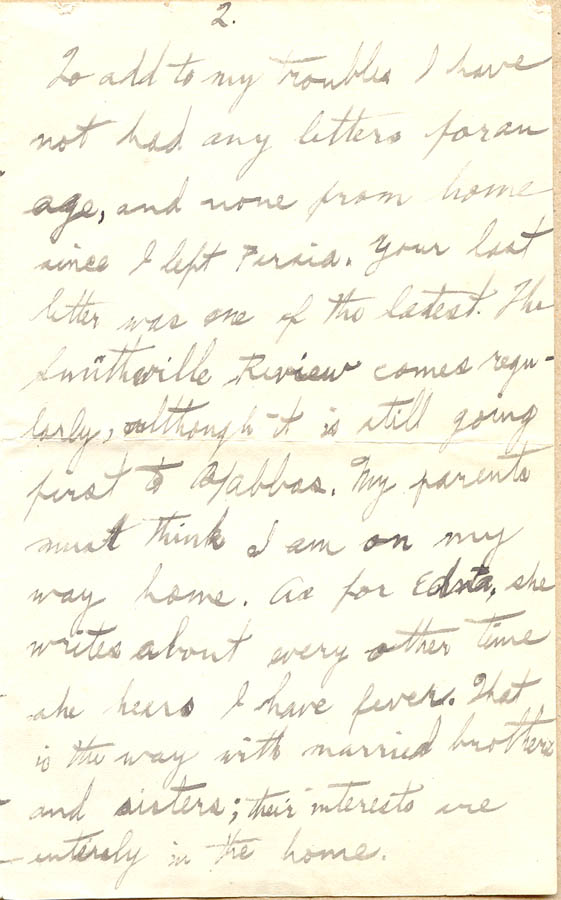 2.
To add to my troubles I have
not had any letters for an
age, and none from home
since I left Persia. Your last
letter was one of the latest. The
Smithville Review comes regu-
larly, although it is still going
first to B/Abbas. My parents
must think I am on my
way home. As for she
writes about every other time
she hears I have fever. That
is the way with married brothers
and sisters; their interests are
entirely in the home.